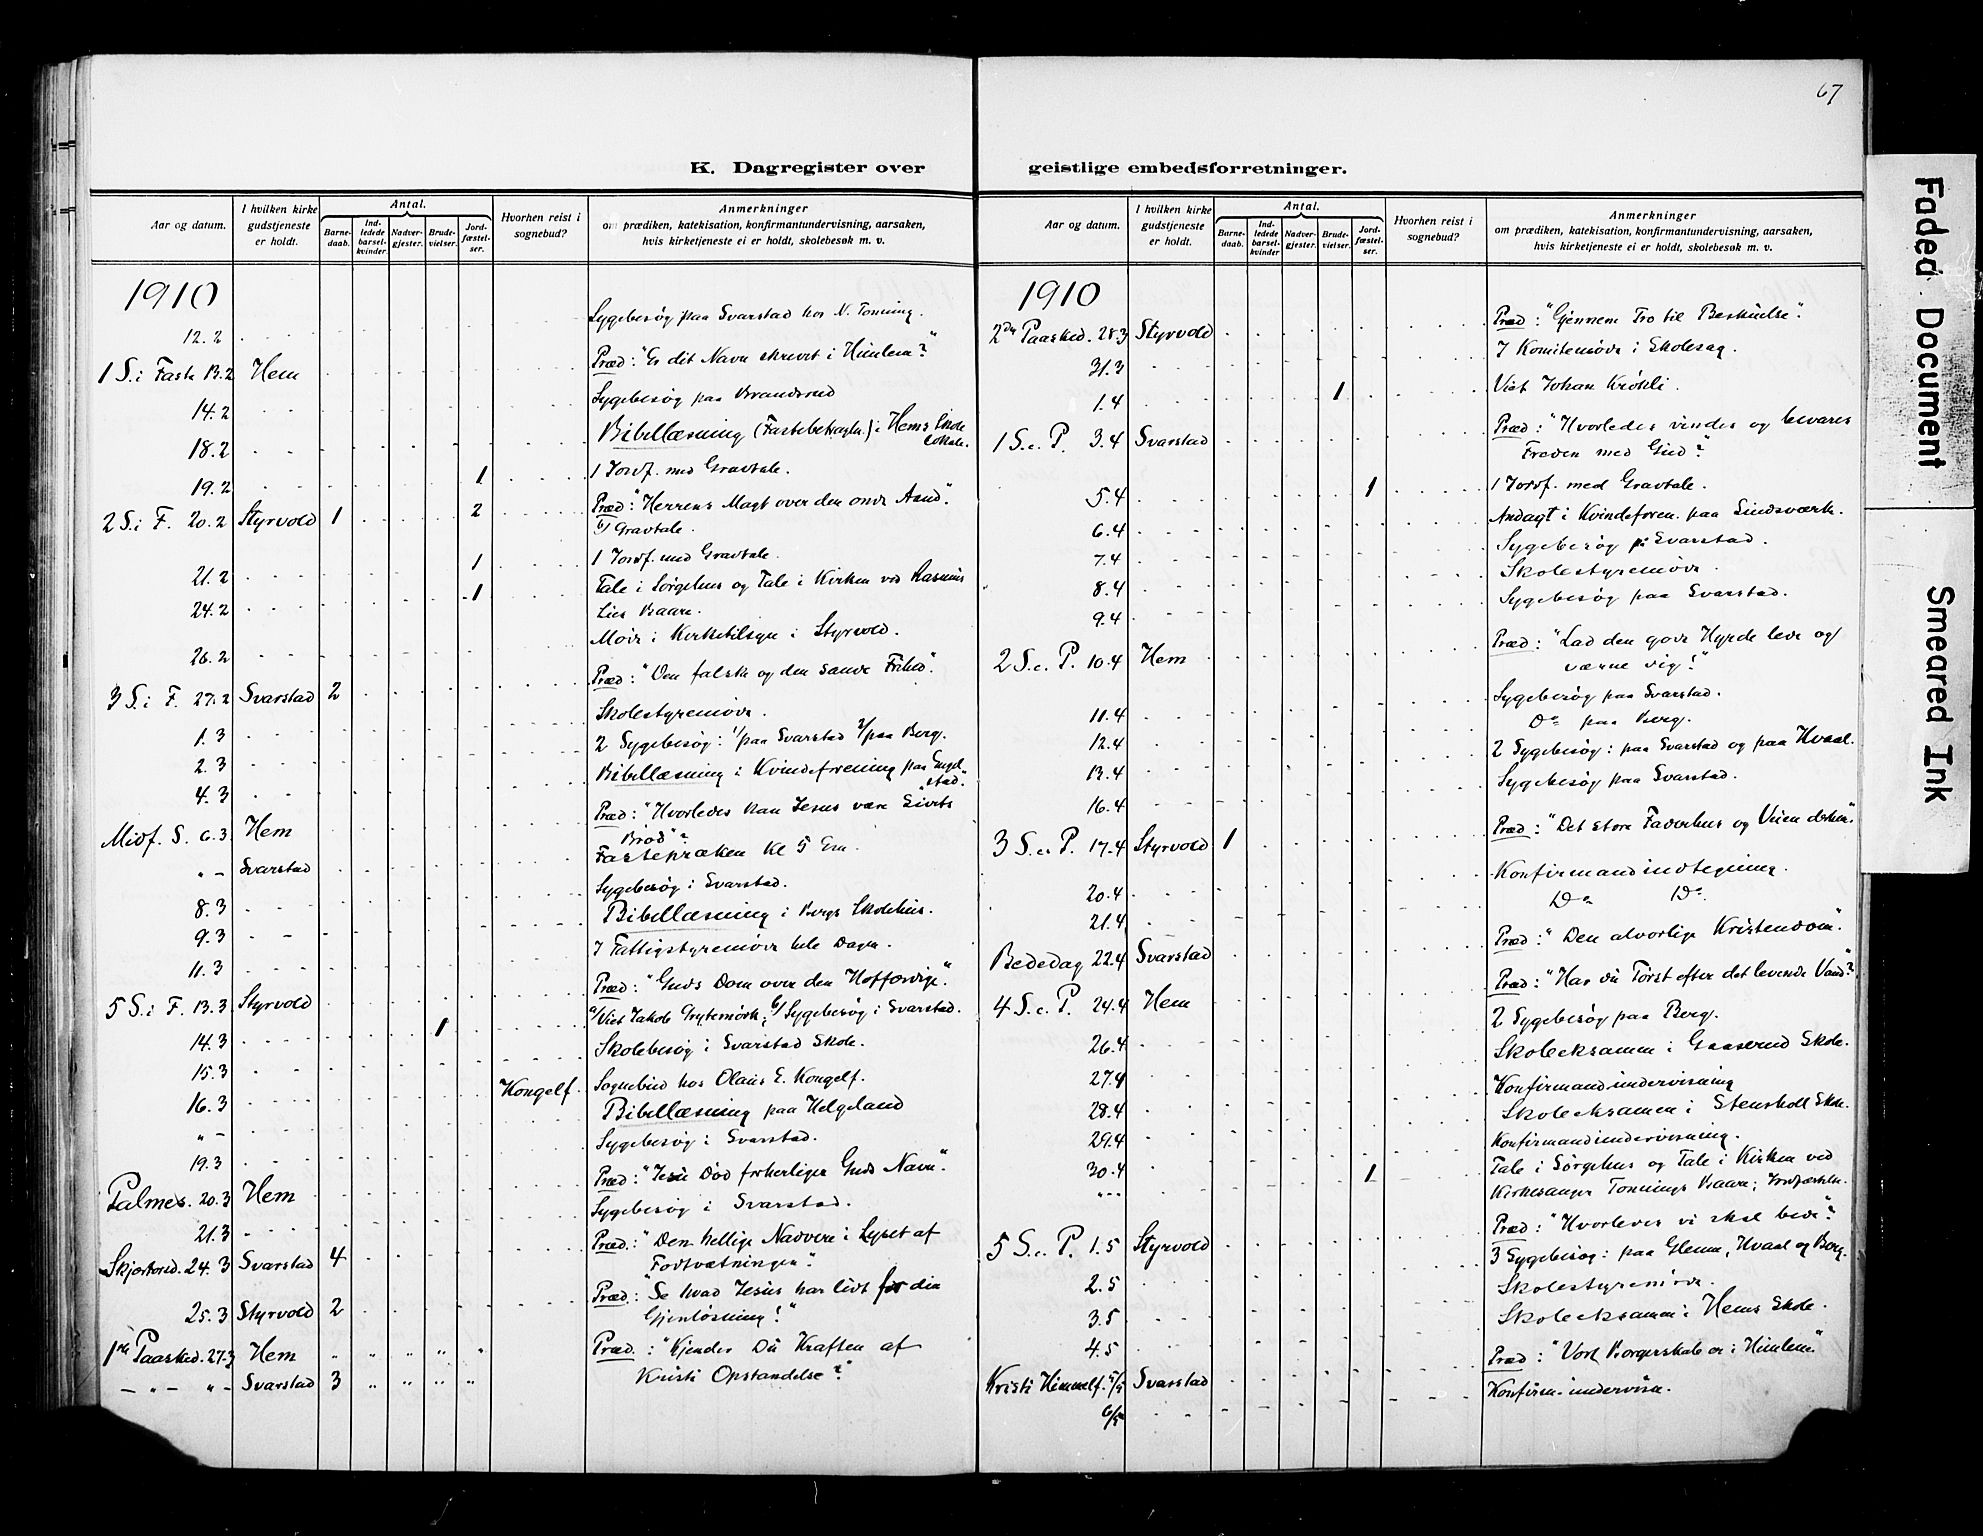 67
K. Dagregister over geistlige embedsforretninger.
Aar og datum. I hvilken kirke gudstjeneste er holdt. Antal. Barnedaab. Indledede barselkvinder. Nadvergjester. Brudevielser. Jordfæstelser. Hvorhen reist i sognebud? Anmerkninger om prædiken, katekisation, konfirmantundervisning, aarsaken, hvis kirketjeneste ei er holdt, skolebesøk m. v.
1910
12.2 Sygebesøg paa Svarstad hos N. Tonning.
1 S. i Faste 13.2 Hem Præd: "Er dit Navn skrevet i Himlem?"
14.2 Sygebesøg paa Brandsrud
18.2 Bibellæsning (Fastebetragtn.) i Hems Skole lokale.
19.2 1 1 Jordf. med Gravtale.
2 S. i F. 20.2 Styrvold 1 2 Præd: "Herrens Magt over den onde Aand".
Gravtale.
21.2 1 1 Jordf. med Gravtale.
24.2 1 Tale i Sørgehus og Tale i Kirken ved Rasmus
Lies Baare.
26.2 Møde i Kirketilsyn i Styrvold.
3 S. i F. 27.2 Svarstad 2 Præd: "Den falske og den sande Frihed".
1.3 Skolestyremøde.
2.3 2 Sygebesøg: 1/ paa Svarstad 2/ paa Berg.
4.3 Bibellæsning i Kvindeforening paa Engelstad.
Midf. S. 6.3 Hem Præd: "Hvorledes kan Jesus være Livets
Brød"?
" - Svarstad Fastepræken Kl 5 Em.
8.3 Sygebesøg i Svarstad.
9.3 Bibellæsning i Bergs Skolehus.
11.3 7 Fattigstyremøde hele Dagen.
5 S. i F. 13.3 Styrvold Præd: "Guds Dom over den Hoffærdige."
14.3 1 a/ Viet Jakob Grytemørk; b/ Sygebesøg i Svarstad.
15.3 Skolebesøg i Svarstad Skole.
16.3 Kongelf. Sognebud hos Olaus E. Kongelf.
" - Bibellæsning paa Helgeland
19.3 Sygebesøg i Svarstad.
Palmes. 20.3 Hem Præd: "Jesu Død forherliger Guds Navn".
21.3 Sygebesøg i Svarstad.
Skjærtorsd. 24.3 Svarstad 4 Præd.: "Den hellige Nadvere i Lyset af
Fodtvætningen".
25.3 Styrvold 2 Præd.: "Se hvad Jesus har lidt for din
Gjenløsning!"
1ste Paasked. 27.3 Hem " " " " " Præd.: "Kjender Du Kraften af
- " - " - Svarstad 3 " " " " Kristi Opstandelse?"
Aar og datum. I hvilken kirke gudstjeneste er holdt. Antal. Barnedaab. Indledede barselkvinder Nadvergjester. Brudevielser. Jordfæstelser. Hvorhen reist i sognebud? Anmerkninger om prædiken, katekisation, konfirmantundervisning, aarsaken, hvis kirketjeneste ei er holdt, skolebesøk m. v.
1910
2den Paasked. 28.3 Styrvold Præd: "Gjennem Tro til Beskuelse".
31.3 7 Komitemøde i Skolesag.
1.4 1 Viet Johan Krøkli.
1 S. e. P. 3.4 Svarstad Præd: "Hvorledes vindes og bevares
Freden med Gud?"
5.4 1 1 Jordf. med Gravtale.
6.4 Andagt i Kvindeforen. paa Lindsværk.
7.4 Sygebesøg p. Svarstad.
8.4 Skolestyremøde.
9.4 Sygebesøg paa Svarstad.
2 S. e. P. 10.4 Hem Præd: "Lad den gode Hyrde lede og
værne dig!"
11.4 Sygebesøg paa Svarstad.
12.4 Do paa Berg.
13.4 2 Sygebesøg: paa Svarstad og paa Hvaal.
16.4 Sygebesøg paa Svarstad.
3 S. e. P. 17.4 Styrvold 1 Præd: "Det store Faderhus og Veien dehen".
20.4 Konfirmandindtegning.
21.4 Do Do
Bededag 22.4 Svarstad Præd: "Den alvorlige Kristendom".
4 S. e. P. 24.4 Hem Præd: "Har du Tørst efter det levende Vand?"
26.4 2 Sygebesøg paa Berg.
27.4 Skoleeksamen i Gaaserud Skole.
28.4 Konfirmandundervisning
29.4 Skoleeksamen i Stensholt Skole.
30.4 Konfirmandundervisning.
" - - 1 Tale i Sørgehus og Tale i Kirken ved
Kirkesanger Tonnings Baare; Jordfæstelse.
5 S. e. P. 1.5 Styrvold Præd: "Hvorledes vi skal bede?"
2.5 3 Sygebesøg: paa Glenne, Hvaal og Berg.
3.5 Skolestyremøde.
4.5 Skoleeksamen i Hems Skole.
Kristi Himmelf. 5/5 Svarstad Præd: "Vort Borgerskab er i Himlem."
6/5 Konfirm. undervisn.
Faded Document
Smeared Ink